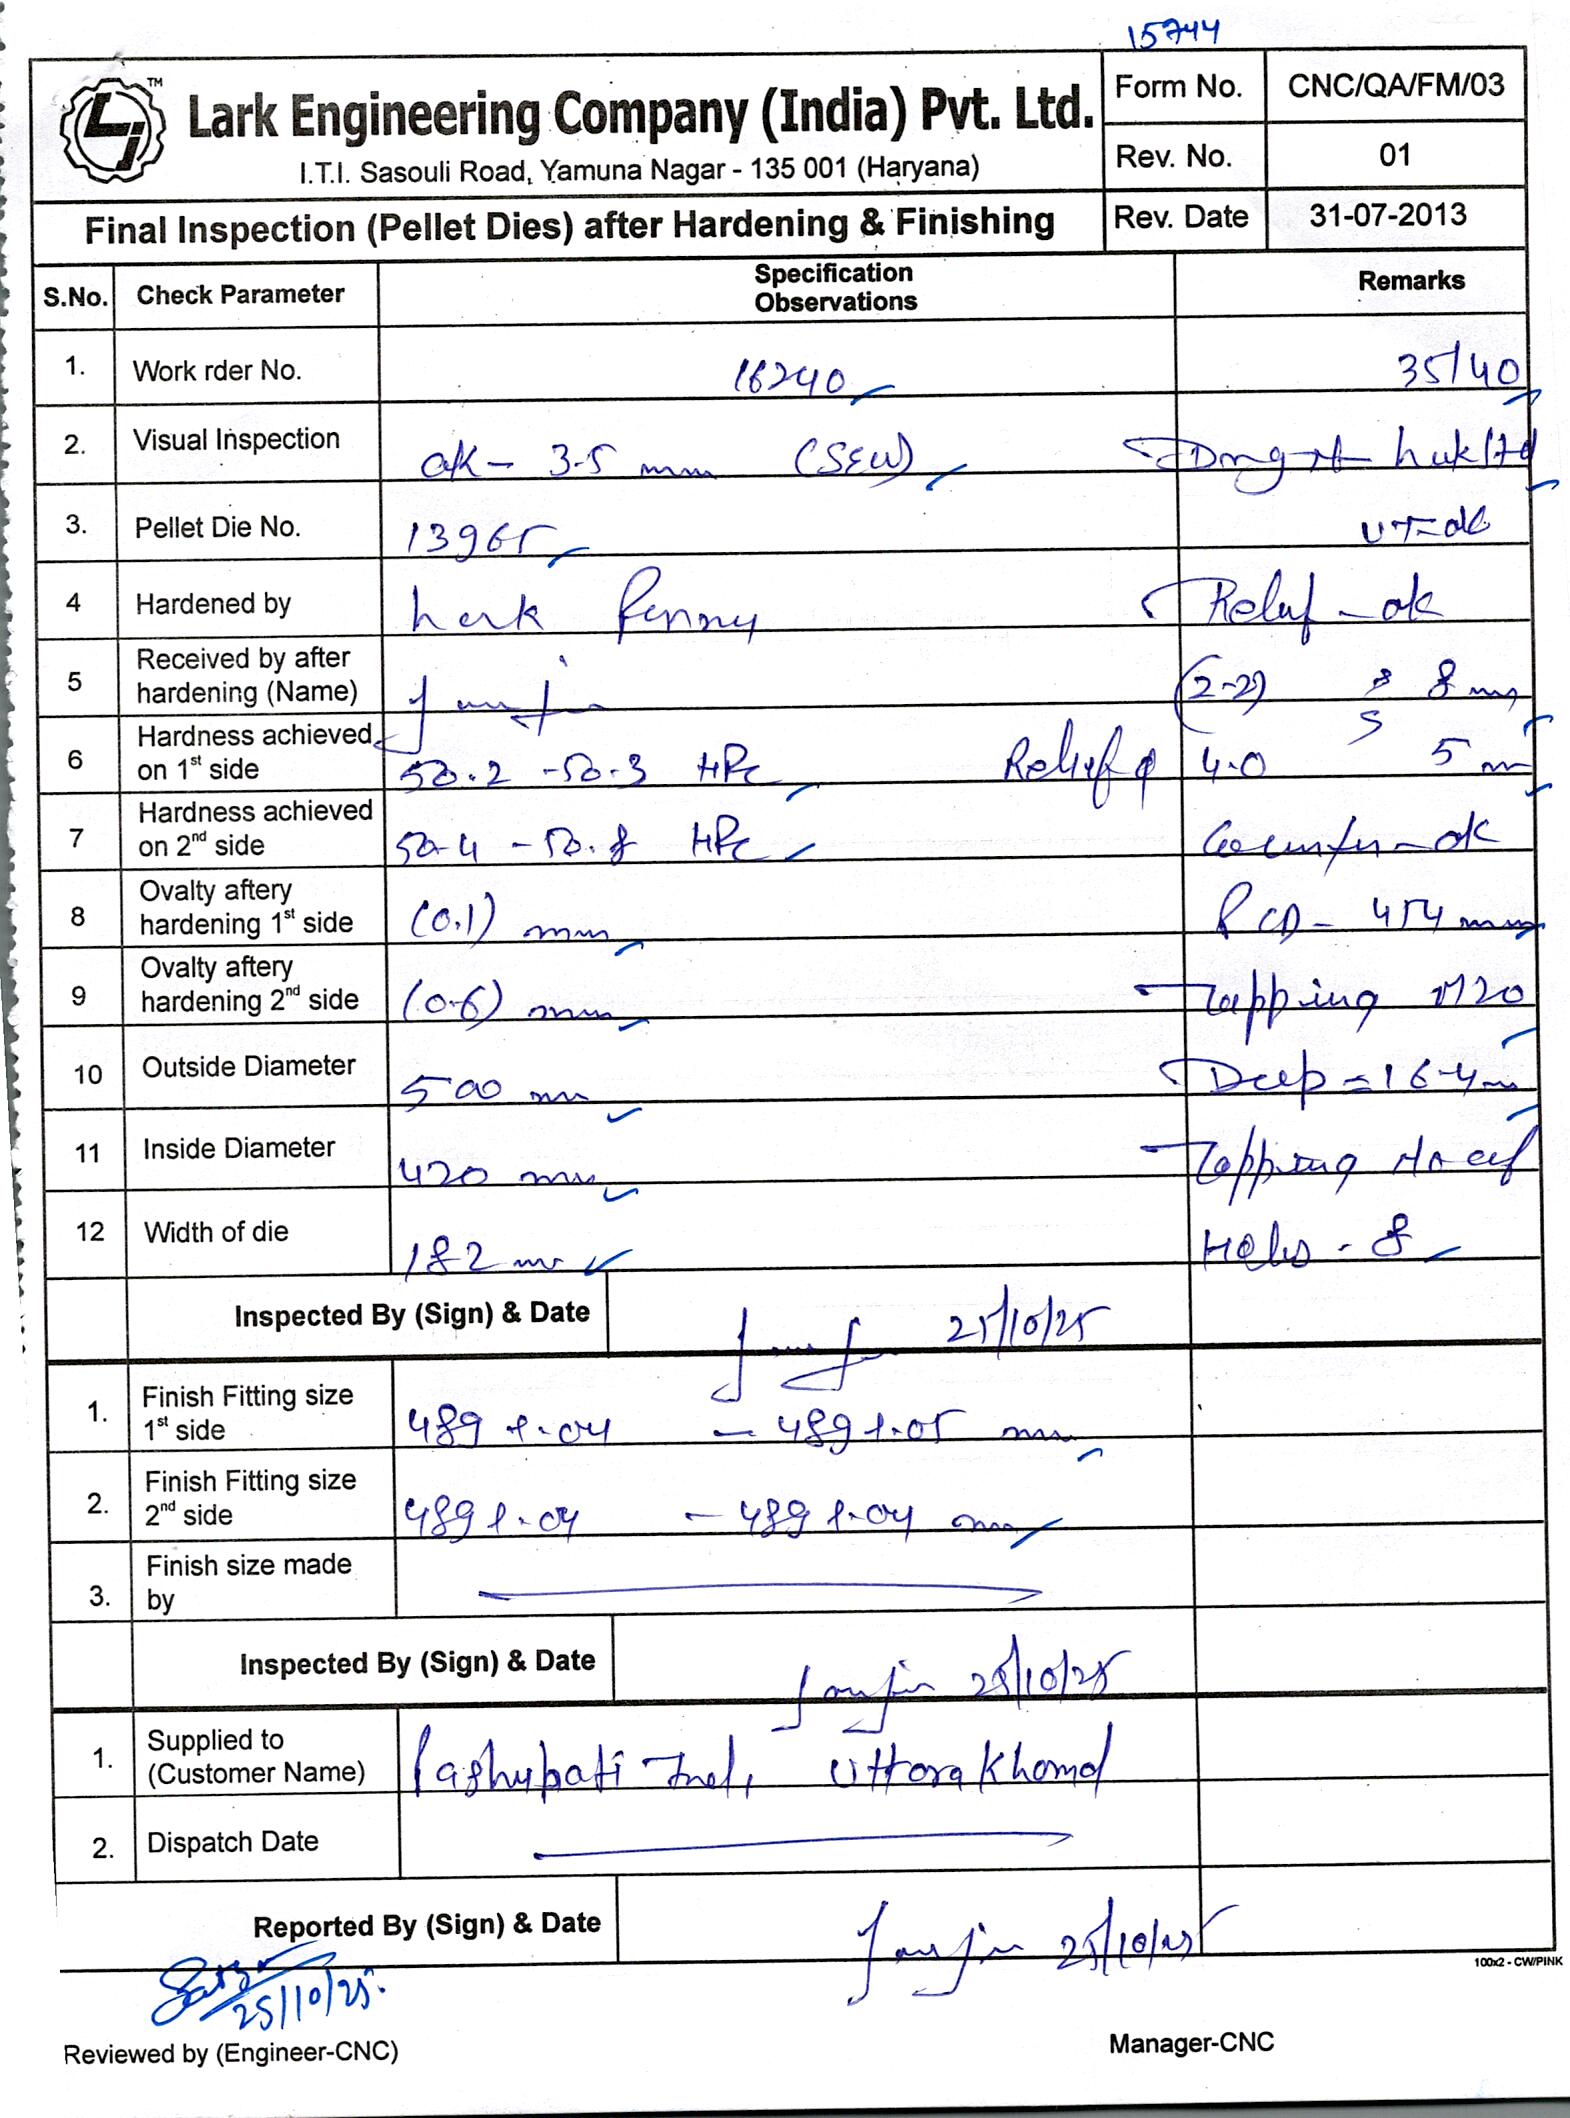 15744
Lark Engineering Company (India) Pvt. Ltd.
TM
I.T.I. Sasouli Road, Yamuna Nagar - 135 001 (Haryana)
Form No. CNC/QA/FM/03
Rev. No. 01
Final Inspection (Pellet Dies) after Hardening & Finishing
Rev. Date 31-07-2013
S.No. Check Parameter Specification Observations Remarks
1. Work rder No. 16240 35/40
2. Visual Inspection ok - 3.5 mm (SEW)
3. Pellet Die No. 13965 UT-ok
4 Hardened by Relief - ok
5 Received by after hardening (Name) (2-2) 8 mm
6 Hardness achieved on 1st side 50.2 - 50.3 HRc Relief φ 4.0 5 mm
7 Hardness achieved on 2nd side 50.4 - 50.8 HRc Counter - ok
8 Ovalty aftery hardening 1st side (0.1) mm PCD - 454 mm
9 Ovalty aftery hardening 2nd side (0.6) mm Tapping M20
10 Outside Diameter 500 mm Deep = 16.4 mm
11 Inside Diameter 420 mm Tapping No of
12 Width of die 182 mm Holes - 8
Inspected By (Sign) & Date 25/10/25
1. Finish Fitting size 1st side 489 +.04 - 489 +.05 mm
2. Finish Fitting size 2nd side 489 +.04 - 489 +.04 mm
3. Finish size made by
Inspected By (Sign) & Date 25/10/25
1. Supplied to (Customer Name) Pashupati Ind, Uttorakhomd
2. Dispatch Date
Reported By (Sign) & Date 25/10/25
100x2 - CW/PINK
25/10/25
Reviewed by (Engineer-CNC)
Manager-CNC